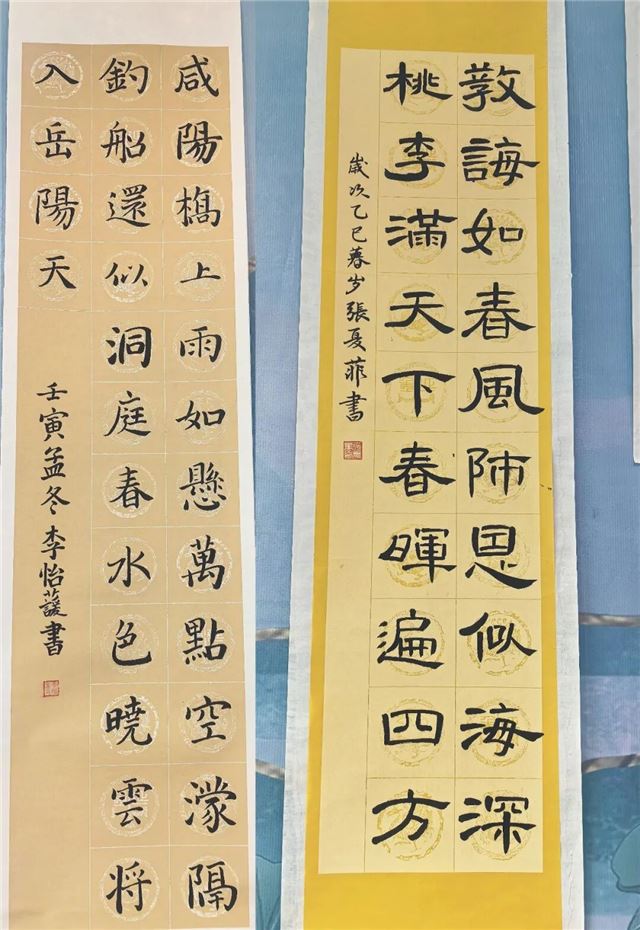 教誨如春風師恩似海深
桃李滿天下春暉遍四方
歲次乙巳暮岁張夏菲書
咸陽橋上雨如懸萬點空濛隔
釣船還似洞庭春水色曉雲將
入岳陽天
壬寅孟冬李怡蘐書